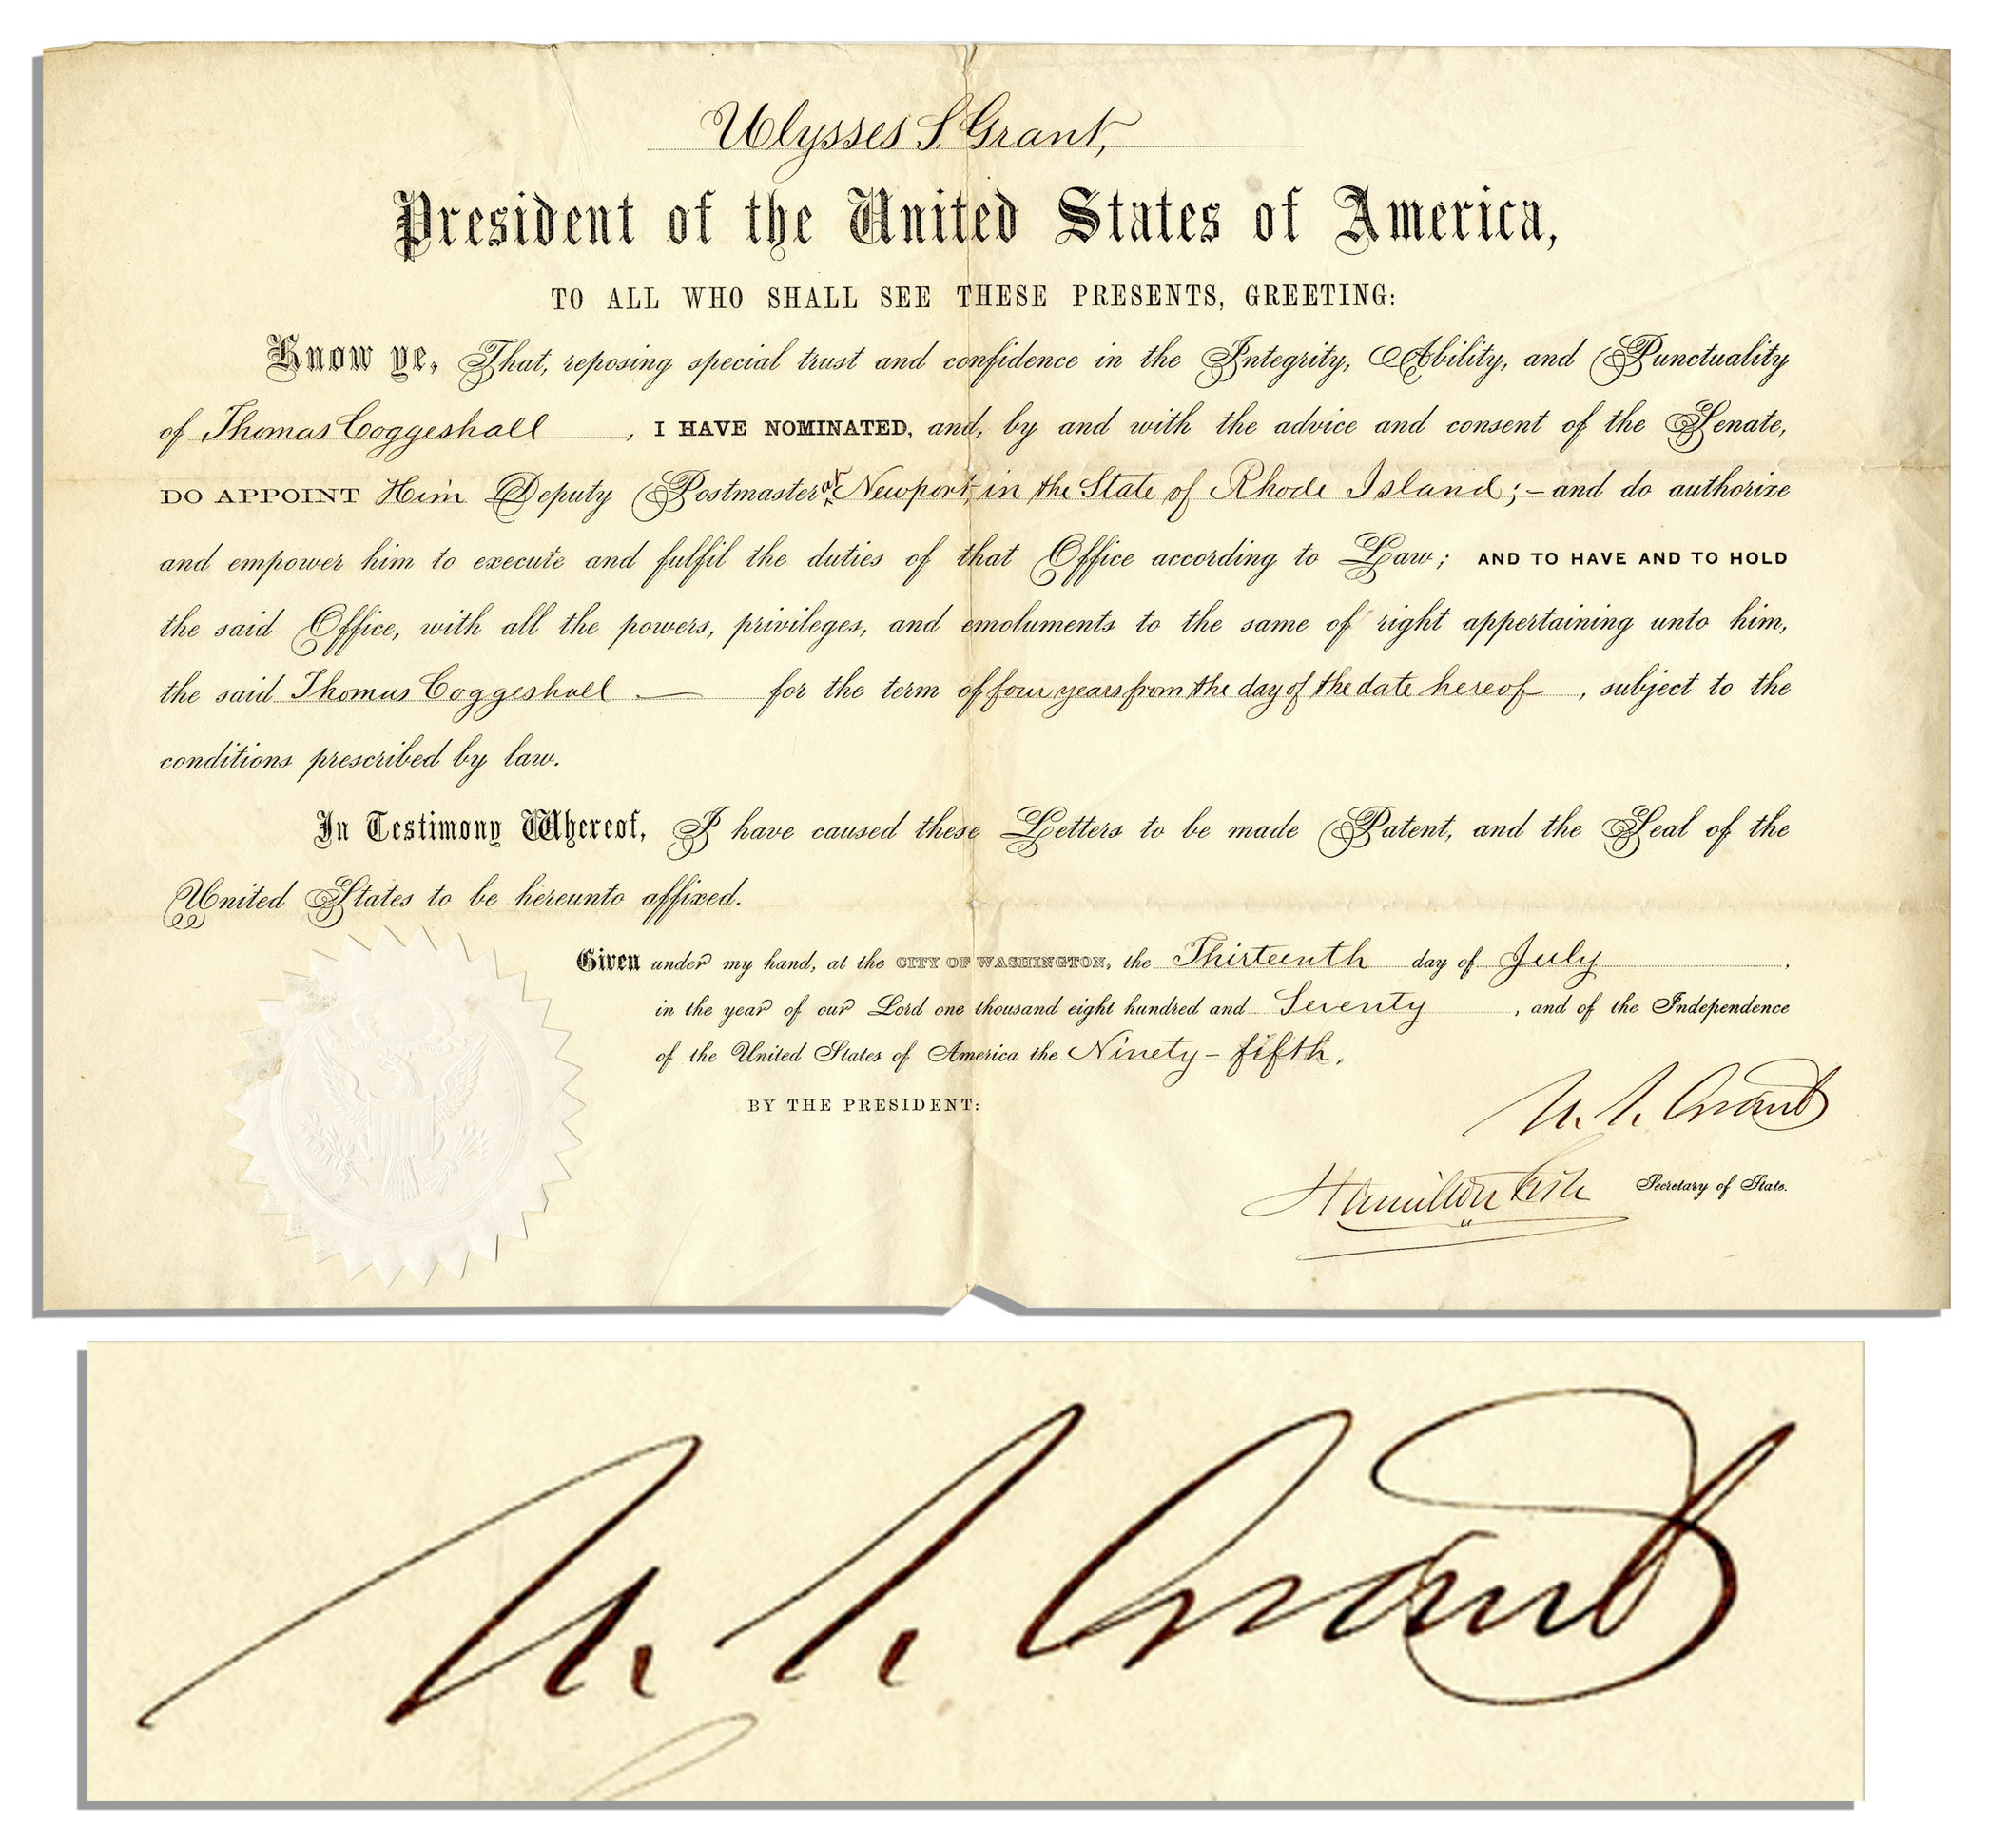 Ulysses S. Grant,
President of the United States of America,
TO ALL WHO SHALL SEE THESE PRESENTS, GREETING:
Know ye, That, reposing special trust and confidence in the Integrity, Ability, and Punctuality
of Thomas Coggeshall , I HAVE NOMINATED, and, by and with the advice and consent of the Senate,
DO APPOINT Him Deputy Postmaster at Newport, in the State of Rhode Island; – and do authorize
and empower him to execute and fulfil the duties of that Office according to Law; AND TO HAVE AND TO HOLD
the said Office, with all the powers, privileges, and emoluments to the same of right appertaining unto him,
the said Thomas Coggeshall — for the term of four years from the day of the date hereof , subject to the
conditions prescribed by law.
In Testimony Whereof, I have caused these Letters to be made Patent, and the Seal of the
United States to be hereunto affixed.
Given under my hand, at the CITY OF WASHINGTON, the Thirteenth day of July ,
in the year of our Lord one thousand eight hundred and Seventy , and of the Independence
of the United States of America the Ninety-fifth.
U. S. Grant
BY THE PRESIDENT:
Hamilton Fish Secretary of State.
U. S. Grant